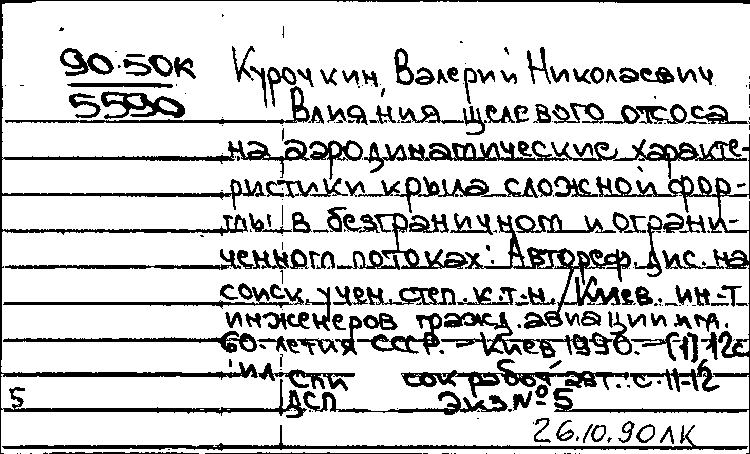 90-50К
5590
Курочкин, Валерий Николаевич
Влияния щелевого отсоса
на аэродинамические характе-
ристики крыла сложной фор-
мы в безграничном и ограни-
ченном потоках: Автореф. дис. на
соиск. учен. степ. к.т.н. / Киев. ин-т
инженеров гражд. авиации им.
60-летия СССР. — Киев 1990. — [1] 12с
: ил
Спи сок работ авт.: с. 11-12
5
ДСП Экз № 5
26.10.90 ЛК